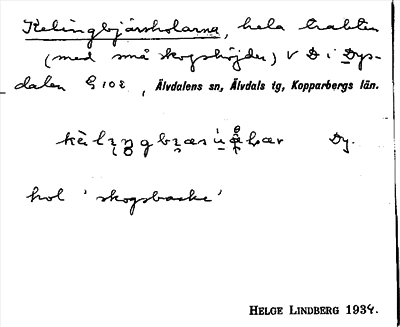 Kelingbjärsholarna, hela trakten
(med små skogshöjder) V D i Dys-
dalen G 10 E, Älvdalens sn, Älvdals tg, Kopparbergs län.
Dy.
hol 'skogsbacke'
HELGE LINDBERG 1934.